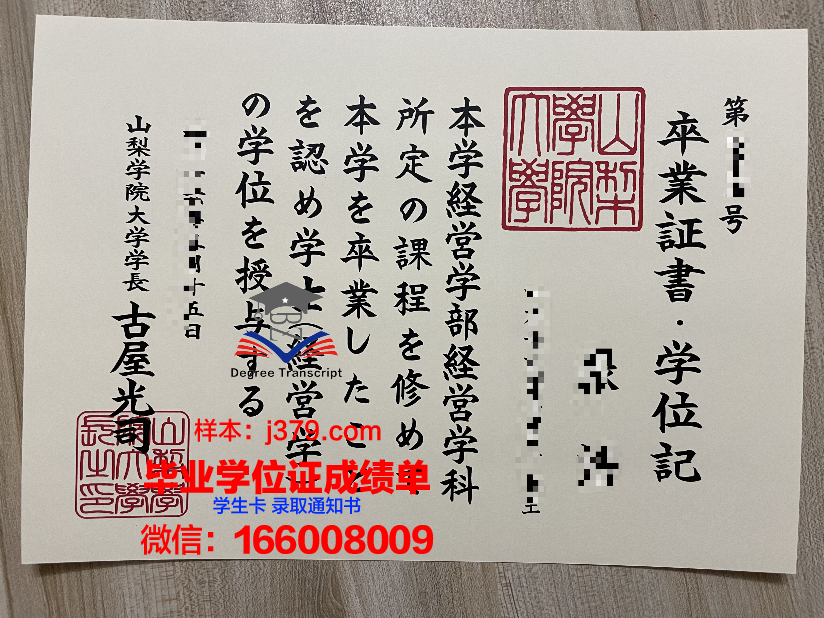 第 号
卒業証書・学位記
山梨
學院
大學
本学経営学部経営学科
所定の課程を修め
本学を卒業したこと
を認め学士(経営学)
の学位を授与する
月十五日
山梨学院大学学長 古屋光司
山梨學
院大學
長之印
Degree Transcript
样本：j379.com
毕业学位证成绩单
学生卡 录取通知书
微信：166008009